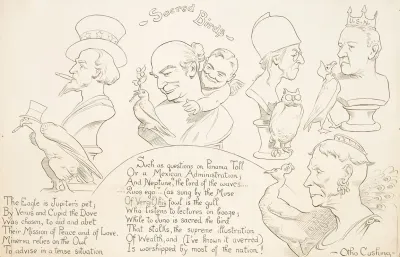 Sacred Birds
The Eagle is Jupiter's pet;
By Venus and Cupid the Dove
Was chosen, to aid and abet
Their Mission of Peace and of Love.
Minerva relies on the Owl
To advise in a tense situation
Such as questions on Panama Toll
Or a Mexican Administration;
And Neptune, the lord of the waves...
(as sung by the Muse
Of Vergil) his fowl is the gull
Who listens to lectures in
While to Juno is sacred the bird
That stalks, the supreme illustration
Of Wealth, and (I've known it averred)
Is worshipped by most of the nation!
- Otho Cushing -